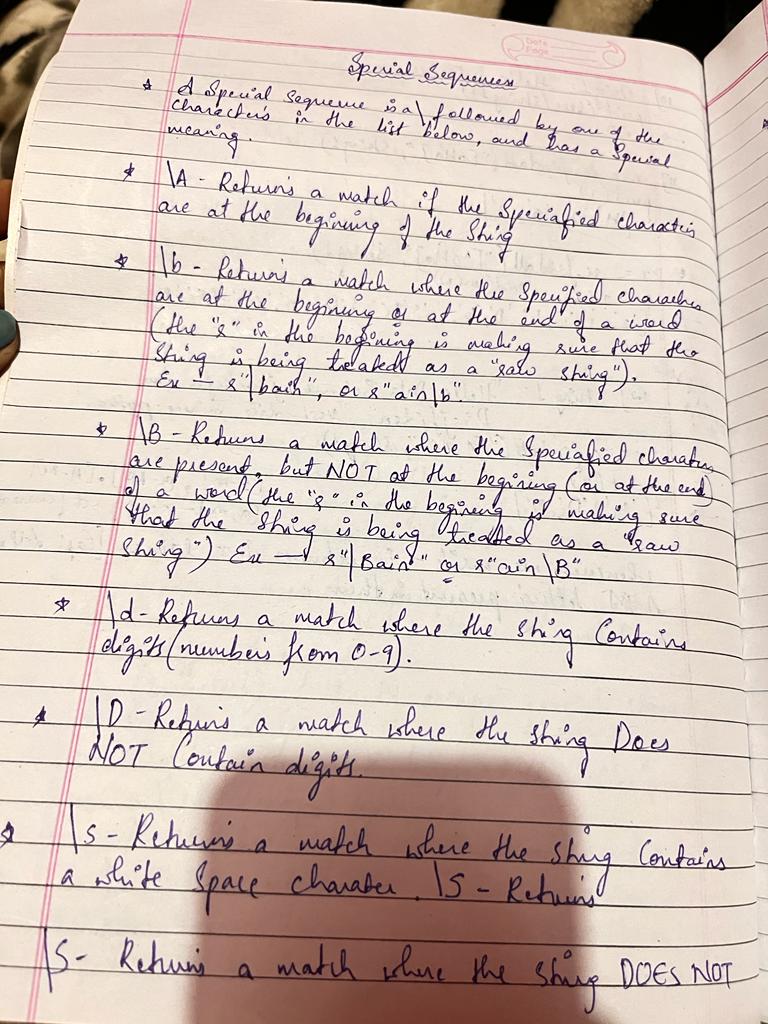 Date
Page
Special Sequences
* A Special Sequence is a \ followed by one of the
characters in the list below, and has a Special
meaning.
* \A - Returns a match if the Speciafied characters
are at the begining of the String
* \b - Returns a match where the Specified characters
are at the begining or at the end of a word
(the "r" in the begining is making sure that the
String is being treated as a "raw string").
Ex — r"\bain", or r"ain\b".
* \B - Returns a match where the Speciafied characters
are present, but NOT at the begining (or at the end)
of a word (the "r" in the begining is making sure
that the string is being treated as a "raw
string") Ex — r"\Bain" or r"ain\B"
* \d - Returns a match where the string Contains
digits (numbers from 0-9).
* \D - Returns a match where the string Does
NOT Contain digits.
* \s - Returns a match where the string Contains
a white Space charater. \S - Returns
\S - Returns a match where the string DOES NOT